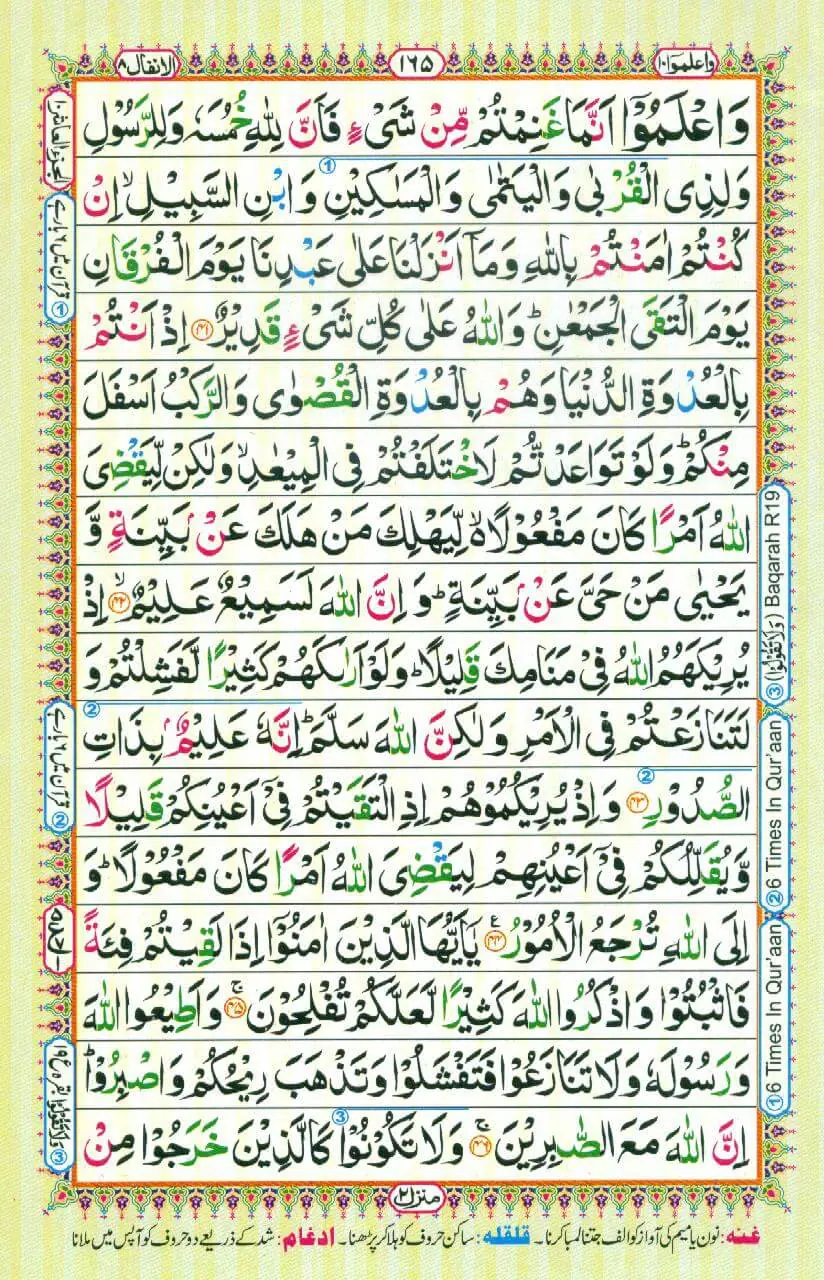 واعلموٓا ۱۰
۱۶۵
الانفال ۸
وَاعْلَمُوْۤا اَنَّمَا غَنِمْتُمْ مِّنْ شَیْءٍ فَاَنَّ لِلّٰهِ خُمُسَهٗ وَلِلرَّسُوْلِ
وَلِذِی الْقُرْبٰی وَالْیَتٰمٰی وَالْمَسٰكِیْنِ وَابْنِ السَّبِیْلِ ۙ اِنْ
كُنْتُمْ اٰمَنْتُمْ بِاللّٰهِ وَمَاۤ اَنْزَلْنَا عَلٰی عَبْدِنَا یَوْمَ الْفُرْقَانِ
یَوْمَ الْتَقَی الْجَمْعٰنِ ؕ وَاللّٰهُ عَلٰی كُلِّ شَیْءٍ قَدِیْرٌ ۴۱ اِذْ اَنْتُمْ
بِالْعُدْوَةِ الدُّنْیَا وَهُمْ بِالْعُدْوَةِ الْقُصْوٰی وَالرَّكْبُ اَسْفَلَ
مِنْكُمْ ؕ وَلَوْ تَوَاعَدْتُّمْ لَاخْتَلَفْتُمْ فِی الْمِیْعٰدِ ۙ وَلٰكِنْ لِّیَقْضِیَ
اللّٰهُ اَمْرًا كَانَ مَفْعُوْلًا ۙ۬ لِّیَهْلِكَ مَنْ هَلَكَ عَنْۢ بَیِّنَةٍ وَّ
یَحْیٰی مَنْ حَیَّ عَنْۢ بَیِّنَةٍ ؕ وَاِنَّ اللّٰهَ لَسَمِیْعٌ عَلِیْمٌ ۙ ۴۲ اِذْ
یُرِیْكَهُمُ اللّٰهُ فِیْ مَنَامِكَ قَلِیْلًا ؕ وَلَوْ اَرٰىكَهُمْ كَثِیْرًا لَّفَشِلْتُمْ وَ
لَتَنَازَعْتُمْ فِی الْاَمْرِ وَلٰكِنَّ اللّٰهَ سَلَّمَ ؕ اِنَّهٗ عَلِیْمٌۢ بِذَاتِ
الصُّدُوْرِ ۴۳ وَاِذْ یُرِیْكُمُوْهُمْ اِذِ الْتَقَیْتُمْ فِیْۤ اَعْیُنِكُمْ قَلِیْلًا
وَّیُقَلِّلُكُمْ فِیْۤ اَعْیُنِهِمْ لِیَقْضِیَ اللّٰهُ اَمْرًا كَانَ مَفْعُوْلًا ؕ وَ
اِلَی اللّٰهِ تُرْجَعُ الْاُمُوْرُ ۴۴ یٰۤاَیُّهَا الَّذِیْنَ اٰمَنُوْۤا اِذَا لَقِیْتُمْ فِئَةً
فَاثْبُتُوْا وَاذْكُرُوا اللّٰهَ كَثِیْرًا لَّعَلَّكُمْ تُفْلِحُوْنَ ۚ ۴۵ وَاَطِیْعُوا اللّٰهَ
وَرَسُوْلَهٗ وَلَا تَنَازَعُوْا فَتَفْشَلُوْا وَتَذْهَبَ رِیْحُكُمْ وَاصْبِرُوْا ؕ
اِنَّ اللّٰهَ مَعَ الصّٰبِرِیْنَ ۚ ۴۶ وَلَا تَكُوْنُوْا كَالَّذِیْنَ خَرَجُوْا مِنْ
① 6 Times In Qur'aan
② 6 Times In Qur'aan
③ (وَلَا تَقُوْلُوْا) Baqarah R19
الجزء العاشر ۱۰
قرآن میں ۶ بار ہے ①
قرآن میں ۶ بار ہے ②
③
منزل ۲
غنه : نون یا میم کی آواز کو الف جتنا لمبا کرنا۔ قلقله : ساکن حروف کو ہلا کر پڑھنا۔ ادغام : شد کے ذریعے دو حروف کو آپس میں ملانا